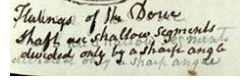 Flutings of the Doric
Shaft are shallow segments
divided only by a sharp angle